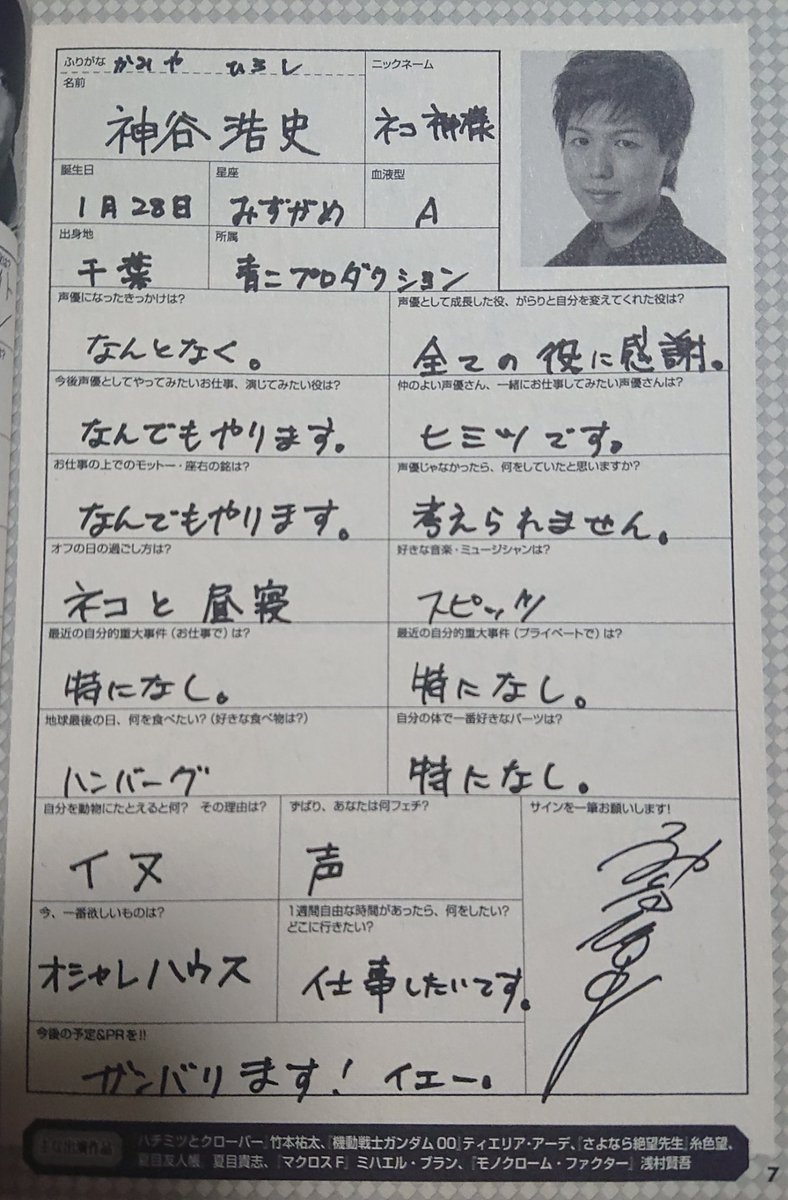 ふりがな かみや ひろし
名前
神谷 浩史
ニックネーム
ネコ神様
誕生日
1月28日
星座
みずがめ
血液型
A
出身地
千葉
所属
青二プロダクション
声優になったきっかけは?
なんとなく。
声優として成長した役、がらりと自分を変えてくれた役は?
全ての役に感謝。
今後声優としてやってみたいお仕事、演じてみたい役は?
なんでもやります。
仲のよい声優さん、一緒にお仕事してみたい声優さんは?
ヒミツです。
お仕事の上でのモットー・座右の銘は?
なんでもやります。
声優じゃなかったら、何をしていたと思いますか?
考えられません。
オフの日の過ごし方は?
ネコと昼寝
好きな音楽・ミュージシャンは?
スピッツ
最近の自分的重大事件(お仕事で)は?
特になし。
最近の自分的重大事件(プライベートで)は?
特になし。
地球最後の日、何を食べたい?(好きな食べ物は?)
ハンバーグ
自分の体で一番好きなパーツは?
特になし。
自分を動物にたとえると何? その理由は?
イヌ
ずばり、あなたは何フェチ?
声
サインを一筆お願いします!
今、一番欲しいものは?
オシャレハウス
1週間自由な時間があったら、何をしたい?
どこに行きたい?
仕事したいです。
今後の予定&PRを!!
ガンバります! イエー。
主な出演作品
ハチミツとクローバー』竹本祐太、『機動戦士ガンダム00』ティエリア・アーデ、『さよなら絶望先生』糸色望、
夏目友人帳』夏目貴志、『マクロスF』ミハエル・ブラン、『モノクローム・ファクター』浅村賢吾
7